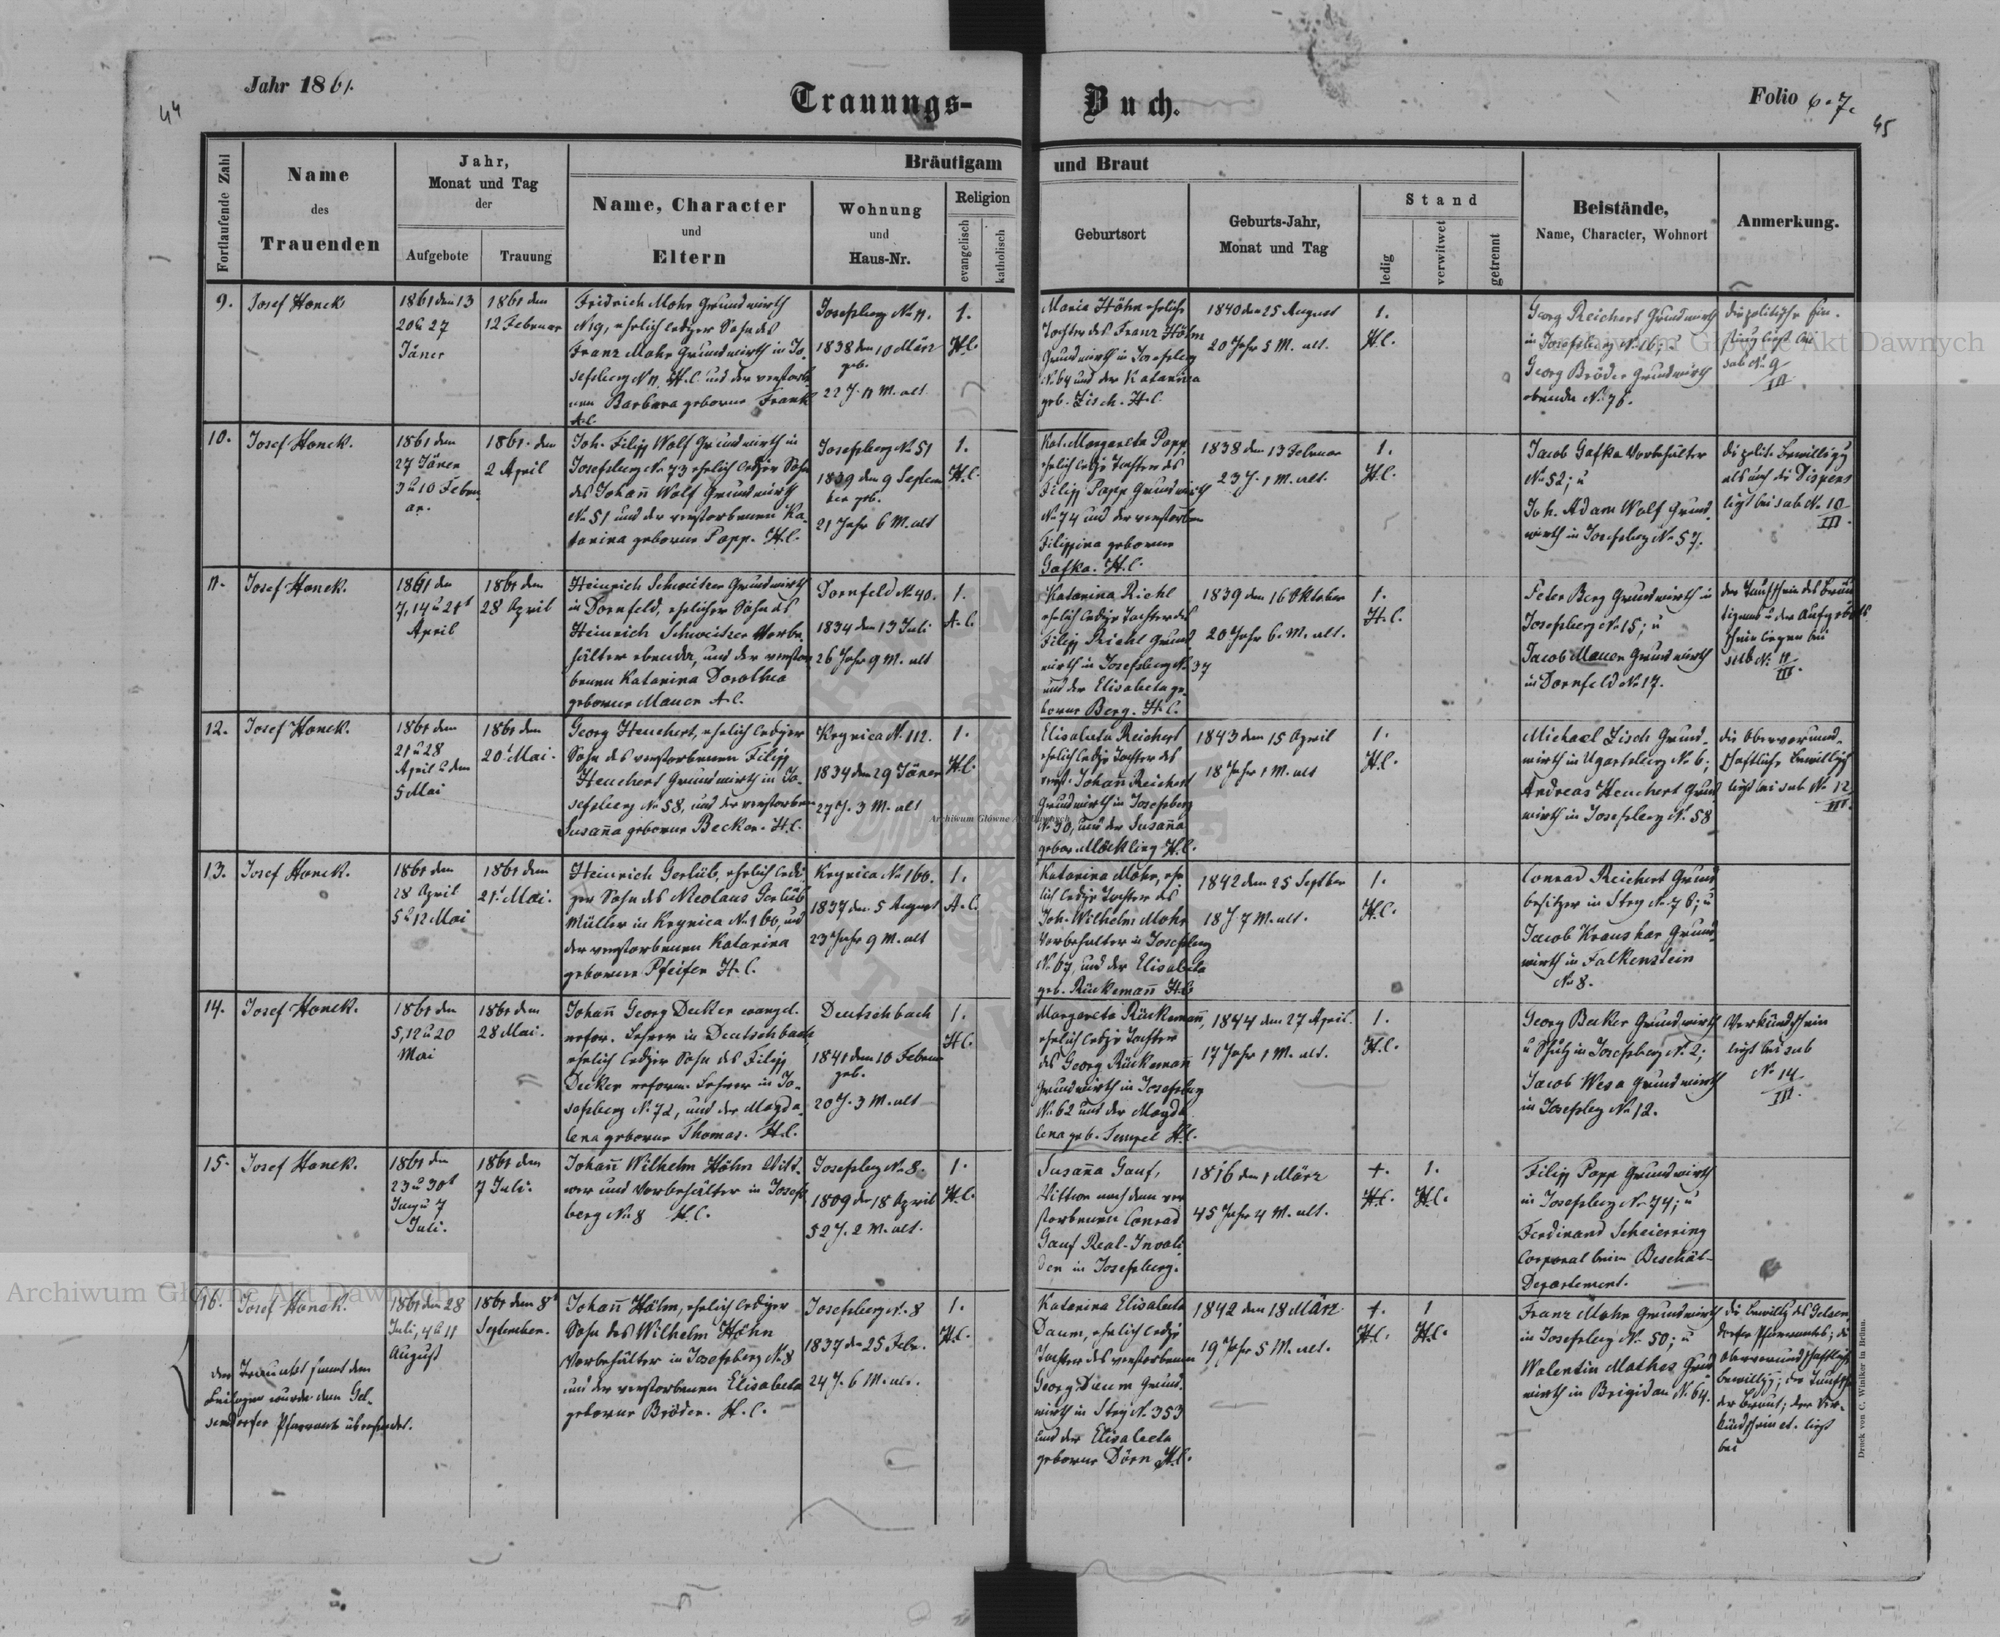 Jahr 1861.
44
Trauungs-
Buch.
Folio 6.7.
45
Fortlaufende Zahl
Name
des
Trauenden
Jahr,
Monat und Tag
der
Aufgebote
Trauung
Bräutigam
und Braut
Name, Character
und
Eltern
Wohnung
und
Haus-Nr.
Religion
evangelisch
katholisch
Geburtsort
Geburts-Jahr,
Monat und Tag
Stand
ledig
verwitwet
getrennt
Beistände,
Name, Character, Wohnort
Anmerkung.
9.
Josef Honek
1861 den 13
20 u 27
Jäner
1861 den
12 Februar
Fridrich Mohr Grundwirth
N 19, ehelich lediger Sohn des
Franz Mohr Grundwirth in Jo-
sefsberg N 11. H.C. und der verstorbe-
nen Barbara geborne Frank
A.C.
Josefsberg No 11.
1838 den 10 März
geb.
22 J. 11 M. alt
1.
H.C.
Maria Höhn eheliche
Tochter des Franz Höhn
Grundwirth in Josefsberg
No 64 und der Katarina
geb. Zisch. H.C.
1840 den 25 August
20 Jahr 5 M. alt.
1.
H.C.
Georg Reichert Grundwirth
in Josefsberg No 16; u
Georg Bröder Grundwirth
ebenda No 76.
die politische
liegt bei
sub No 9
III
10.
Josef Honek.
1861 den
27 Jäner
3 u 10 Febru
ar.
1861. den
2 April
Joh. Filipp Wolf Grundwirth in
Josefsberg No 73 ehelich lediger Sohn
des Johann Wolf Grundwirth
No 51 und der verstorbenen Ka-
tarina geborne Popp. H.C.
Josefsberg No 51
1839 den 9 Septem
ber geb.
21 Jahr 6 M. alt
1.
H.C.
Kat. Margareta Popp,
ehelich ledige Tochter des
Filipp Popp Grundwirth
No 74 und der verstorben
Filippina geborne
Gafka. H.C.
1838 den 13 Februar
23 J. 1 M. alt.
1.
H.C.
Jacob Gafka Vorbehälter
No 52; u
Joh. Adam Wolf Grund-
wirth in Josefsberg No 57.
die polit. Bewilligg
als auch die Dispens
liegt bei sub No 10
III.
11.
Josef Honek.
1861 den
7, 14 u 21t
April
1861 den
28 April
Heinrich Schweitzer Grundwirth
in Dornfeld, ehelicher Sohn des
Heinrich Schweitzer Vorbe-
hälter ebenda, und der verstor
benen Katarina Dorothea
geborne Mauer A.C.
Dornfeld No 40.
1834 den 13 Juli
26 Jahr 9 M. alt
1.
A.C.
Katarina Riehl
ehelich ledige Tochter des
Filipp Riehl Grund-
wirth in Josefsberg No 37
und der Elisabeta ge-
borne Berg. H.C.
1839 den 16 Oktober
20 Jahr 6. M. alt.
1.
H.C.
Peter Berg Grundwirth in
Josefsberg No 15; u
Jacob Mauer Grundwirth
in Dornfeld No 17.
der Taufschein des Bräu
tigams u der Aufgebots
schein liegen bei
sub No 11
III.
12.
Josef Honek.
1861 den
21 u 28
April u den
5 Mai
1861 den
20t Mai.
Georg Heuchert, ehelich lediger
Sohn des verstorbenen Filipp
Heuchert Grundwirth in Jo-
sefsberg No 58, und der verstorbenen
Susanna geborne Becker. H.C.
Krynica N. 112.
1834 den 29 Jäner
27 J. 3 M. alt
1.
H.C.
Elisabeta Reichert
ehelich ledige Tochter des
verst. Johann Reichert
Grundwirth in Josefsberg
No 30, und der Susanna
gebor. Möckling H.C.
1843 den 15 April
18 Jahr 1 M. alt
1.
H.C.
Michael Zisch Grund-
wirth in Ugartsberg No 6;
Andreas Heuchert Grund
wirth in Josefsberg No 58
die Obervormund-
schaftliche Bewilligg
liegt bei sub No 12
III.
13.
Josef Honek.
1861 den
28 April
5 u 12 Mai
1861 den
21t. Mai.
Heinrich Gerlüb, ehelich ledi-
ger Sohn des Nicolaus Gerlüb
Müller in Krynica No 160, und
der verstorbenen Katarina
geborne Pfeifer H.C.
Krynica No 160.
1837 den 5 August
23 Jahr 9 M. alt
1.
A.C.
Katarina Mohr, ehe
lich ledige Tochter des
Joh. Wilhelm Mohr
Vorbehalter in Josefsberg
No 67, und der Elisabeta
geb. Rückemann H.C.
1842 den 25 Septber
18 J 7 M. alt.
1.
H.C.
Conrad Reichert Grund
besitzer in Stry No 76; u
Jacob Kraushar Grund
wirth in Falkenstein
No 8.
14.
Josef Honek.
1861 den
5, 12 u 20
Mai
1861 den
28 Mai.
Johann Georg Decker evangel.
refor. Lehrer in Deutschbach,
ehelich lediger Sohn des Filipp
Decker reform. Lehrer in Jo-
sefsberg No 72, und der Magda-
lena geborne Thomas. H.C.
Deutschbach
1841 den 10 Februar
geb.
20 J. 3 M. alt
1.
H.C.
Margareta Rückemann,
ehelich ledige Tochter
des Georg Rückemann
Grundwirth in Josefsberg
No 62 und der Magda
lena geb. Tempel H.C.
1844 den 27 April.
17 Jahr 1 M. alt.
1.
H.C.
Georg Becker Grundwirth
u Schulz in Josefsberg No 2;
Jacob Wesa Grundwirth
in Josefsberg No 12.
Verkündschein
liegt bei sub
No 14
III.
15.
Josef Honek.
1861 den
23 u 30t
Juny u 7
Juli.
1861 den
7 Juli.
Johann Wilhelm Höhn Witt-
wer und Vorbehälter in Josefs
berg No 8 H.C.
Josefsberg No 8.
1809 den 18 April
52 J. 2 M. alt.
1.
H.C.
Susanna Gauf,
Wittwe nach dem ver
storbenen Conrad
Gauf Real-Invali
den in Josefsberg.
1816 den 1 März
45 Jahr 4 M. alt.
1.
H.C.
1.
H.C.
Filipp Popp Grundwirth
in Josefsberg No 74; u
Ferdinand Scheierring
Corporal beim Beschäl-
Departement.
16.
Josef Honek.
1861 den 28
Juli, 4 u 11
August
1861 den 8t
September.
Johann Höhn, ehelich lediger
Sohn des Wilhelm Höhn
Vorbehälter in Josefsberg No 8
und der verstorbenen Elisabeta
geborne Bröder. H.C.
Josefsberg N. 8
1837 den 25 Febr.
24 J. 6 M. alt.
1.
H.C.
Katarina Elisabeta
Daum, ehelich ledige
Tochter des verstorbenen
Georg Daum Grund-
wirth in Stry No 353
und der Elisabeta
geborne Dörn H.C.
1842 den 18 März
19 Jahr 5 M. alt.
1.
H.C.
1
H.C.
Franz Mohr Grundwirth
in Josefsberg No 50; u
Walentin Mathes Grund
wirth in Brigidau N. 64.
die bewilligg des Gelsen-
dorfer Pfarramtes; die
Obervormundschaftliche
bewilligg; der Taufsch.
der Braut; der Ver-
kündschein et. liegt
bei
der Trauakt sammt den
Beilagen wurde dem Gel-
sendorfer Pfarramte übersendet.
Druck von C. Winiker in Brünn.
Archiwum Główne Akt Dawnych
Archiwum Główne Akt Dawnych
Archiwum Główne Akt Dawnych